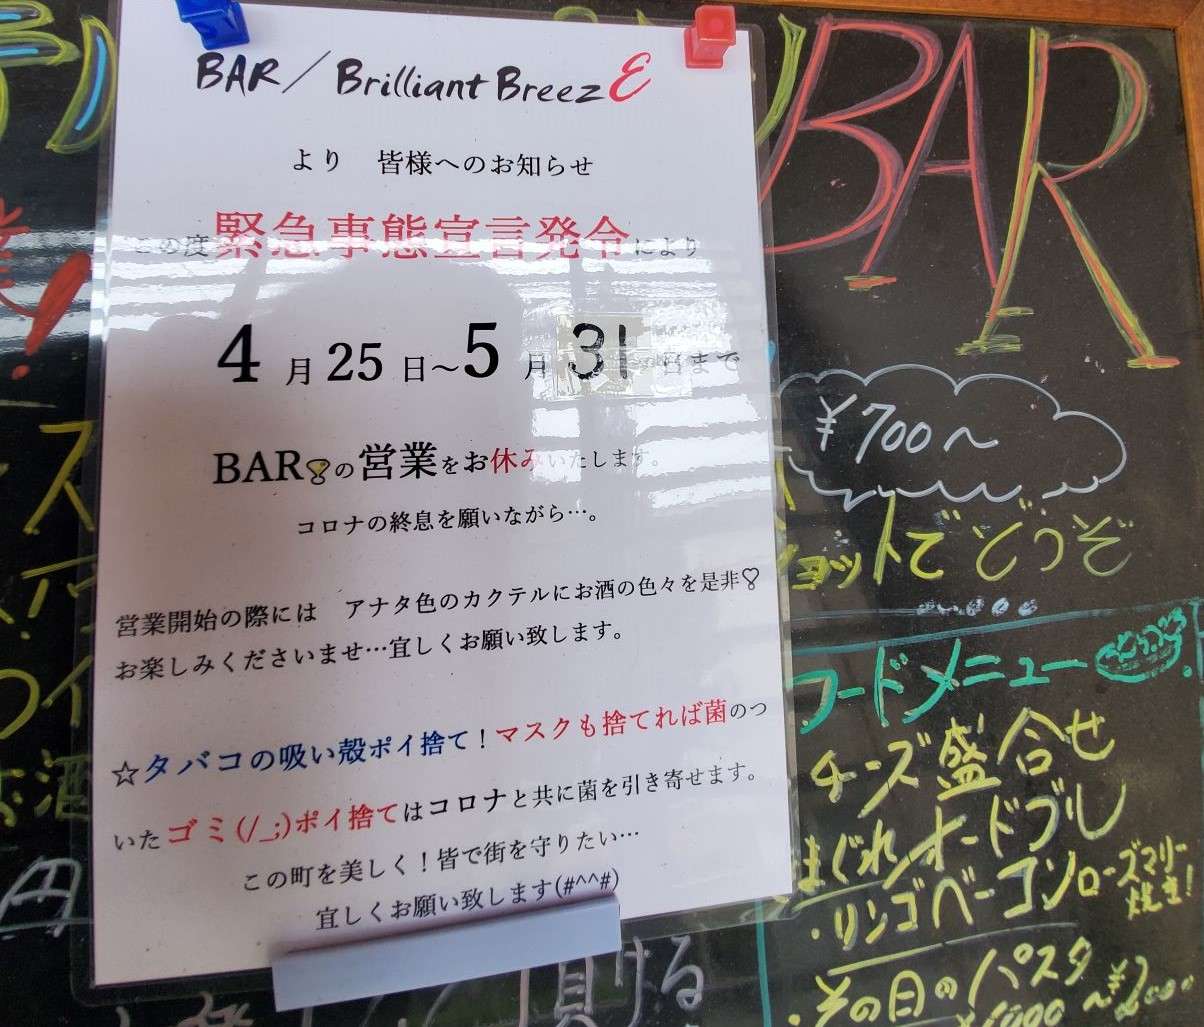 BAR/Brilliant BreezE
より 皆様へのお知らせ
この度緊急事態宣言発令により
4月25日～5月31日まで
BARの営業をお休みいたします。
コロナの終息を願いながら…。
営業開始の際には アナタ色のカクテルにお酒の色々を是非♡
お楽しみくださいませ…宜しくお願い致します。
☆タバコの吸い殻ポイ捨て！マスクも捨てれば菌のつ
いたゴミ(/_;)ポイ捨てはコロナと共に菌を引き寄せます。
この町を美しく！皆で街を守りたい…
宜しくお願い致します(#^^#)
BAR
¥700～
ョットでどうぞ
フードメニュー
チーズ盛合せ
まぐれオードブル
・リンゴベーコンローズマリー
焼き!
・その日のパスタ
ス
お酒
円